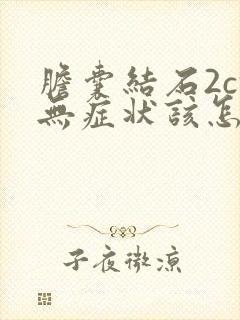 膽囊結石2c
無症狀該怎
子夜微涼